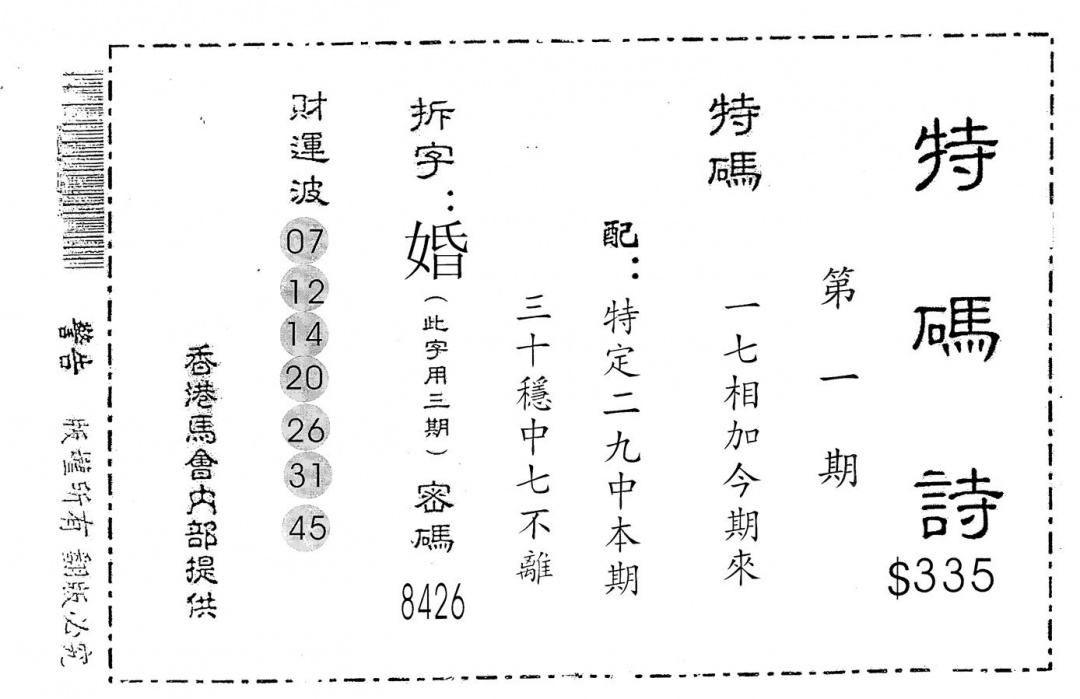 特碼詩
$335
第一期
特碼
一七相加今期來
配：特定二九中本期
三十穩中七不離
拆字：婚（此字用三期）密碼 8426
財運波 07 12 14 20 26 31 45
香港馬會內部提供
警告 版權所有 翻版必究